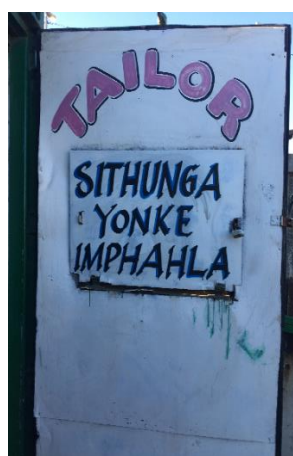 TAILOR
SITHUNGA
YONKE
IMPHAHLA